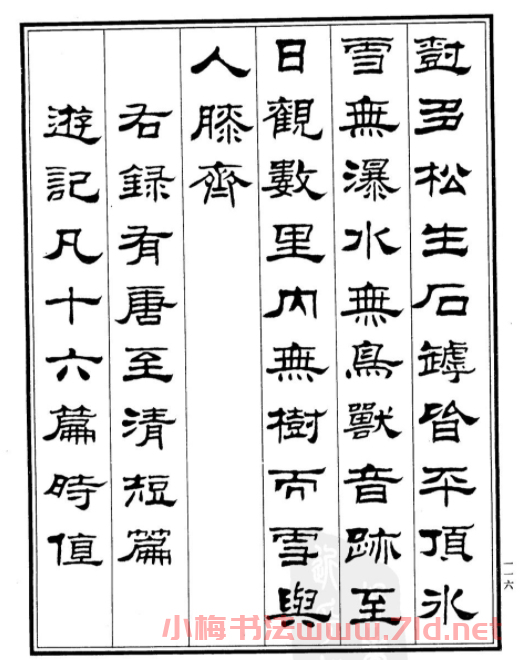 尌多松生石罅皆平頂冰
雪無瀑水無鳥獸音跡至
日觀數里內無樹而雪與
人膝齊
右錄有唐至清短篇
遊記凡十六篇時值
一一六
小梅书法www.71d.net